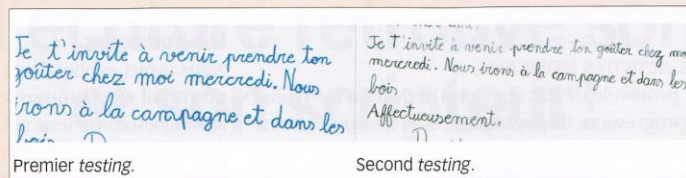 Je t'invite à venir prendre ton
goûter chez moi mercredi. Nous
irons à la campagne et dans les
Je t'invite à venir prendre ton goûter chez mo
mercredi. Nous irons à la campagne et dans les
bois
Affectueusement.
Premier testing.
Second testing.